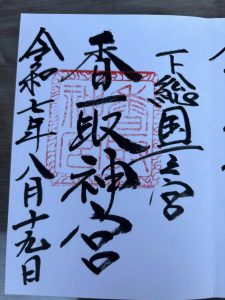 下総国一之宮
香取神宮
令和七年八月十九日